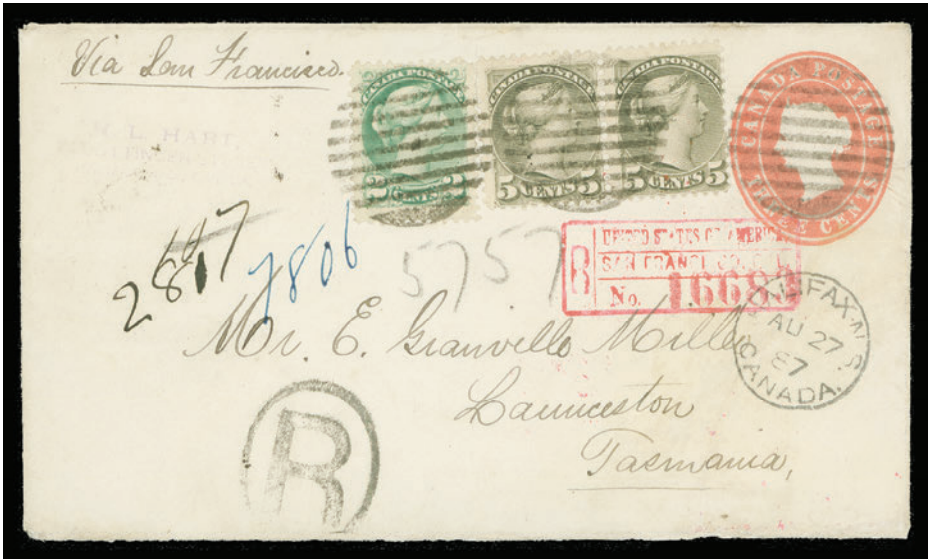 Via San Francisco.
CANADA POSTAGE
CENTS
CANADA POSTAGE
5 CENTS 5
CANADA POSTAGE
5 CENTS 5
CANADA POSTAGE
THREE CENTS
L. HART.
2817
7806
5757
R
UNITED STATES OF AMERICA
SAN FRANCISCO, CAL.
No. 16683
HALIFAX·N.S.
AU 27
87
CANADA.
Mr. E. Granville Miller
Launceston
Tasmania,
R